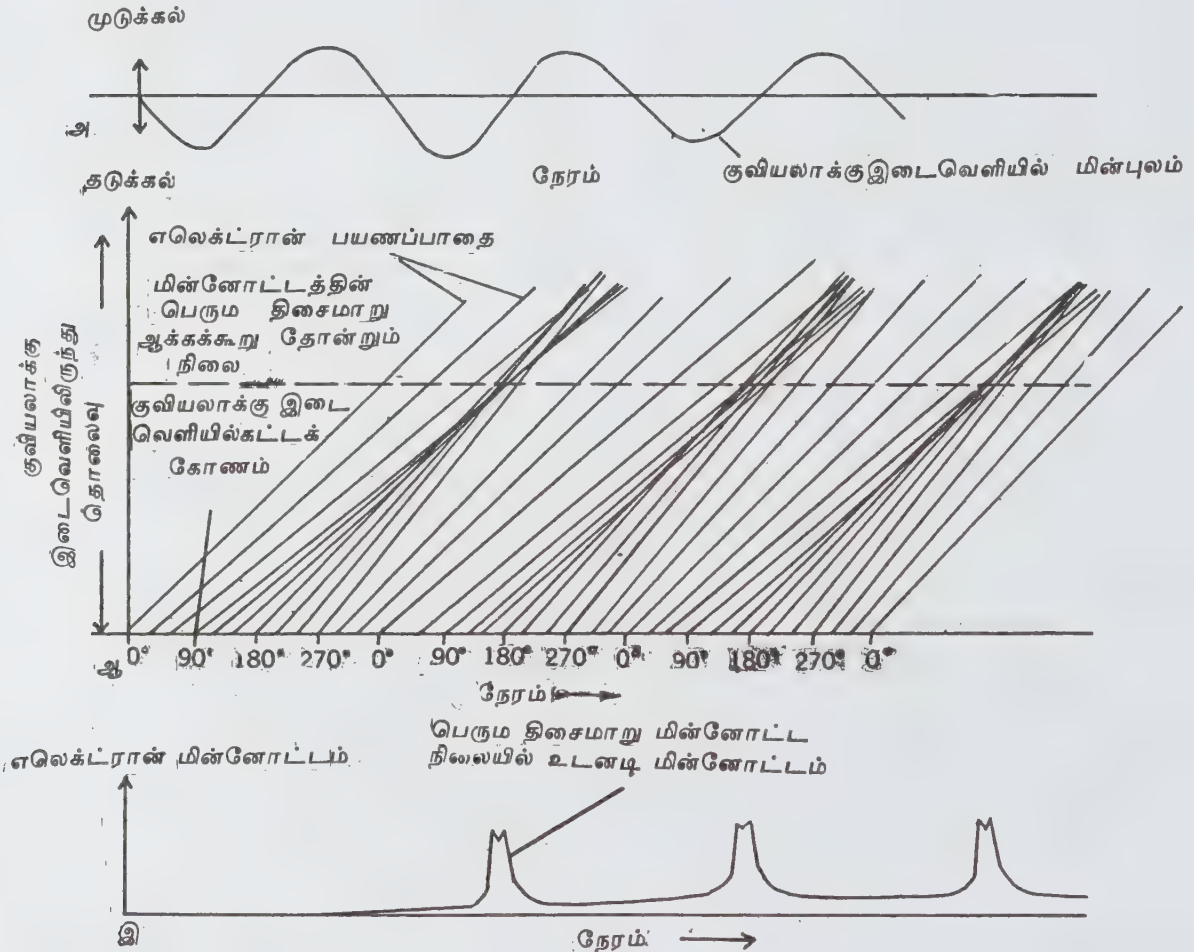 முடுக்கல்
அ
தடுக்கல்
நேரம்
குவியலாக்கு இடைவெளியில் மின்புலம்
எலெக்ட்ரான் பயணப்பாதை
மின்னோட்டத்தின்
பெரும திசைமாறு
ஆக்கக்கூறு தோன்றும்
நிலை
குவியலாக்கு இடை
வெளியில்கட்டக்
கோணம்
குவியலாக்கு
இடைவெளியிலிருந்து
தொலைவு
ஆ
0° 90° 180° 270° 0° 90° 180° 270° 0° 90° 180° 270° 0°
நேரம்
பெரும திசைமாறு மின்னோட்ட
நிலையில் உடனடி மின்னோட்டம்
எலெக்ட்ரான் மின்னோட்டம்
இ
நேரம்